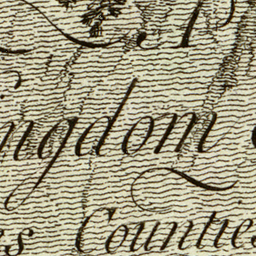 P
ingdom
es Counties